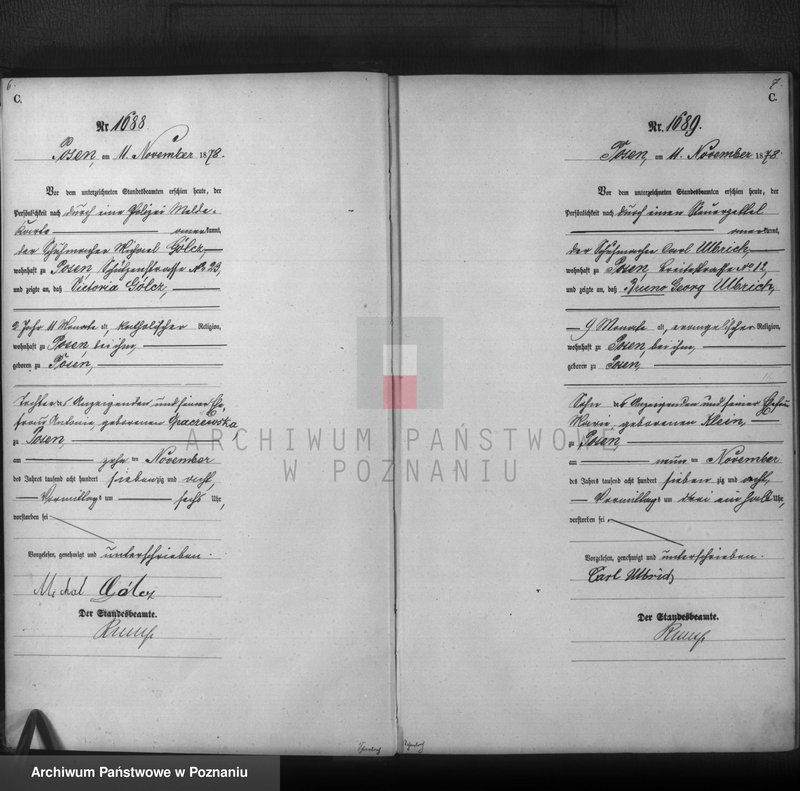 6.
C.
Nr. 1688.
Posen, am 11. November 1878.
Vor dem unterzeichneten Standesbeamten erschien heute, der
Persönlichkeit nach durch eine Polizei Melde-
karte anerkannt,
der Schuhmacher Michael Gólcz,
wohnhaft zu Posen, Schützenstrasse No 23,
und zeigte an, daß Victoria Gólcz,
2 Jahr 11 Monate alt, katholischer Religion,
wohnhaft zu Posen, bei ihm,
geboren zu Posen,
Tochter des Anzeigenden und seiner Ehe-
frau Antonie, geborenen Graczewska,
zu Posen
am zehn ten November
des Jahres tausend acht hundert siebenzig und acht,
Vormittags um sechs Uhr,
verstorben sei
Vorgelesen, genehmigt und unterschrieben.
Michał Gólcz
Der Standesbeamte.
7.
C.
Nr. 1689.
Posen, am 11. November 1878.
Vor dem unterzeichneten Standesbeamten erschien heute, der
Persönlichkeit nach durch einen Steuerzettel
anerkannt,
der Schuhmacher Carl Ulbrich,
wohnhaft zu Posen, Breitestrasse No 12,
und zeigte an, daß Bruno Georg Ulbrich,
9 Monate alt, evangelischer Religion,
wohnhaft zu Posen, bei ihm,
geboren zu Posen,
Sohn des Anzeigenden und seiner Ehefrau
Marie, geborenen Klein,
zu Posen
am neun ten November
des Jahres tausend acht hundert siebenzig und acht,
Vormittags um drei ein halb Uhr,
verstorben sei
Vorgelesen, genehmigt und unterschrieben.
Carl Ulbrich
Der Standesbeamte.
ARCHIWUM PAŃSTWOWE
W POZNANIU
Archiwum Państwowe w Poznaniu